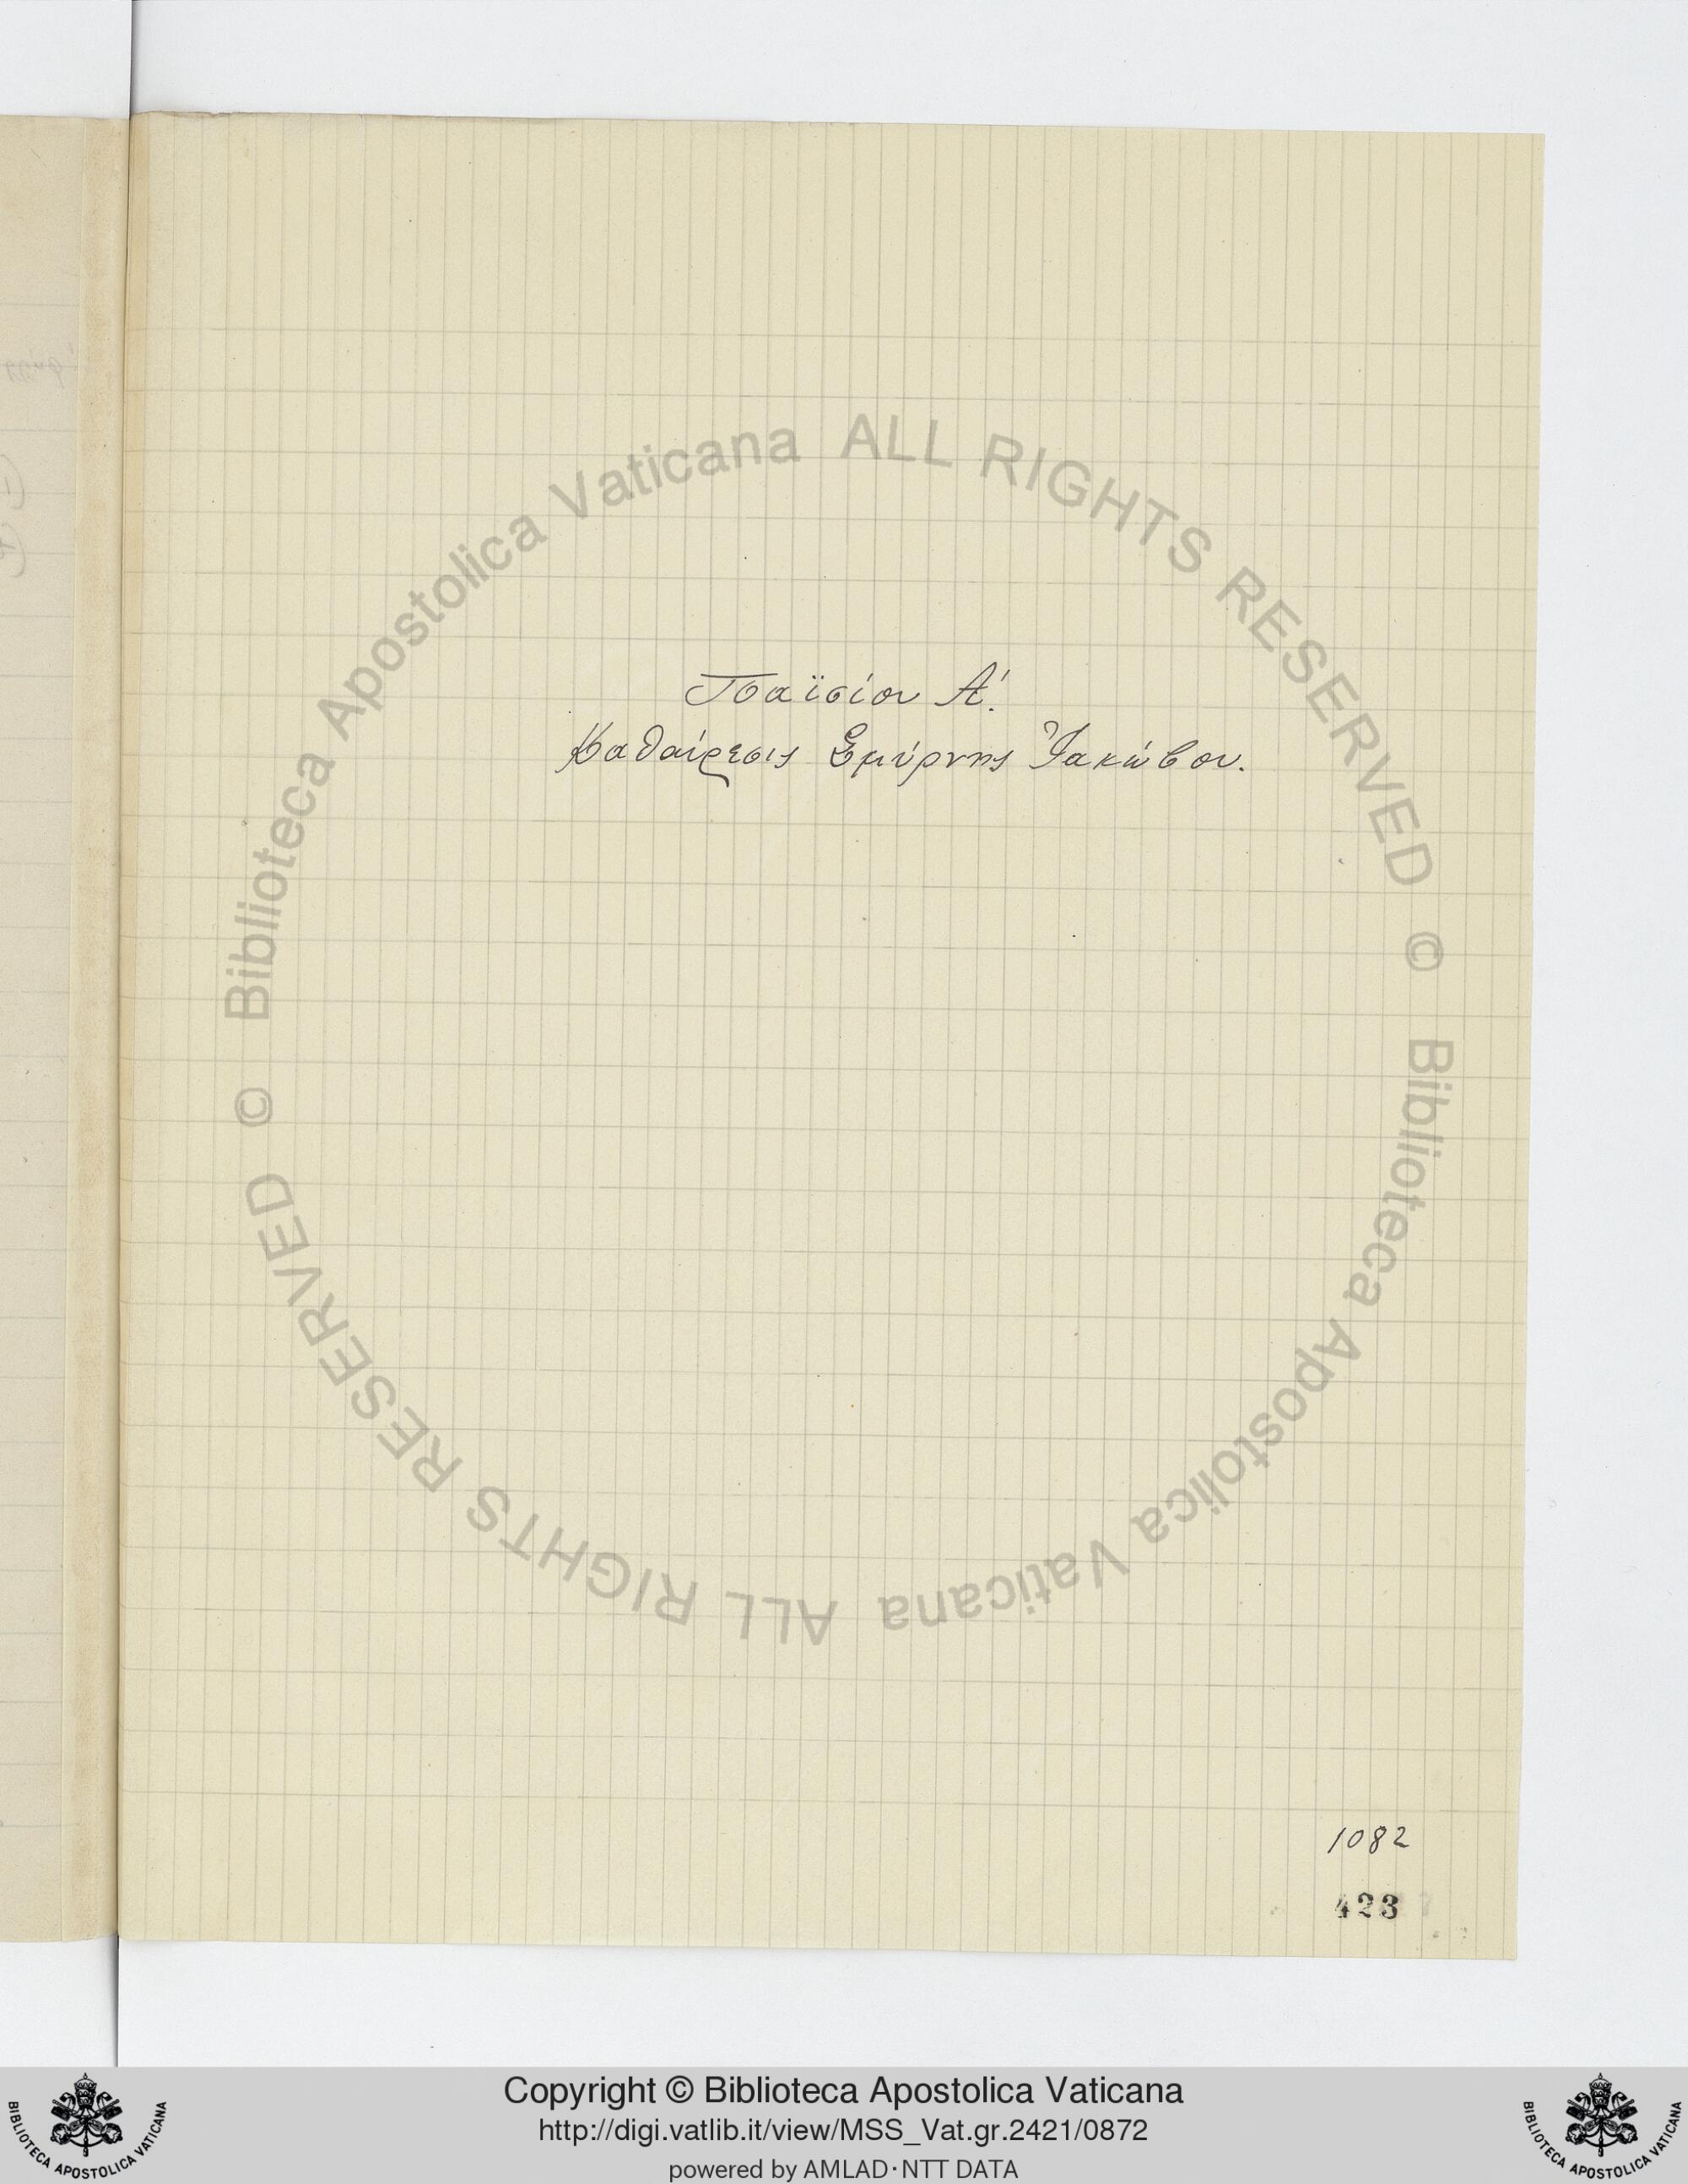 Παϊσίου Α΄.
Καθαίρεσις Σμύρνης Ἰακώβου.
1082
423
© Biblioteca Apostolica Vaticana ALL RIGHTS RESERVED
© Biblioteca Apostolica Vaticana ALL RIGHTS RESERVED
BIBLIOTECA APOSTOLICA VATICANA
Copyright © Biblioteca Apostolica Vaticana
http://digi.vatlib.it/view/MSS_Vat.gr.2421/0872
powered by AMLAD·NTT DATA
BIBLIOTECA APOSTOLICA VATICANA